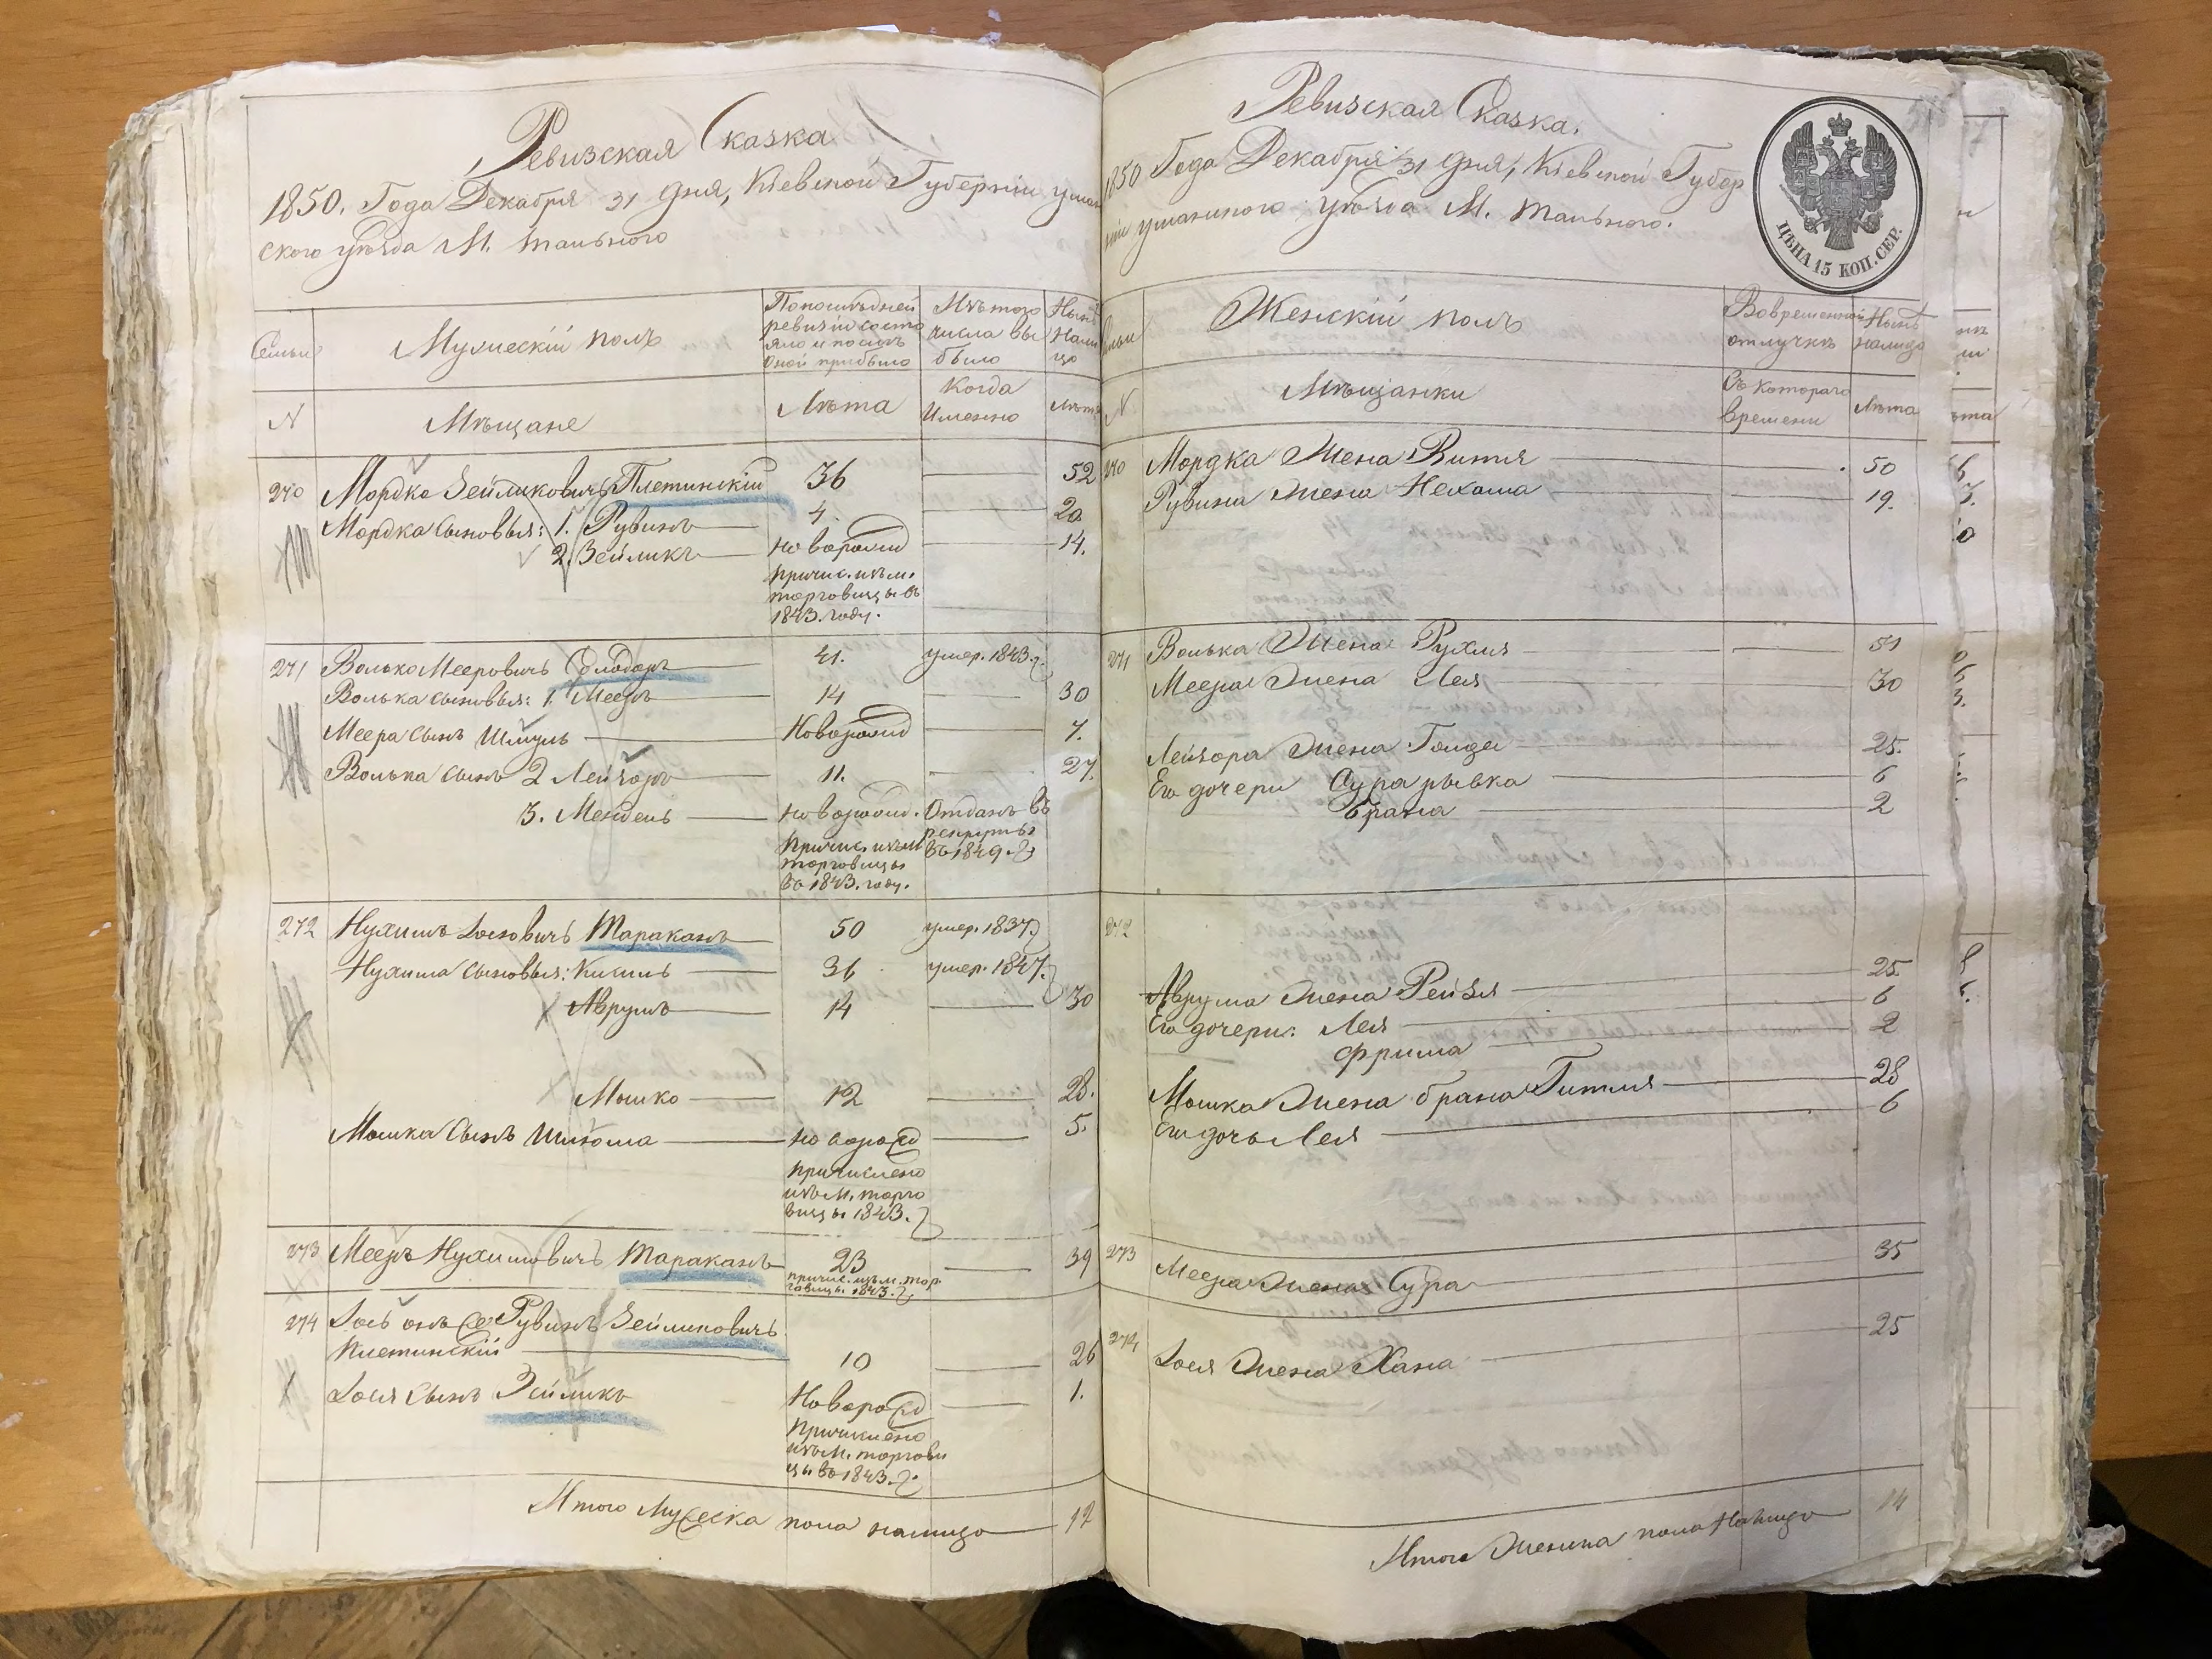 Ревизская Сказка
1850. Года Декабря 31 дня, Кіевской Губерніи уман
ского уѣзда М. Тального
Семьи
Мужескій полъ
По последней
ревизіи состо
яло и после
оной прибыло
Изъ того
числа вы
было
Нынѣ
Нали
цо
N
Мѣщане
Лѣта
Когда
Именно
Лѣта
270 Мордко Зейликовичъ Плетинскій 36 52
Мордка сыновья: 1. Рувинъ 4. 20
2. Зейликъ новорожд 14.
Причис. изъ м.
торговицы въ
1843. году.
271 Волько Мееровичъ 41. умер. 1843.
Волька сыновья: 1. Мееръ 14 30
Меера сынъ Шмуль Новорожд 7.
Волька сынъ 2 Лейзоръ 11. 27.
3. Мендель новорожд. Отданъ въ
рекруты
въ 1849.
Причис. изъ м
торговицы
въ 1843. году.
272 Нухимъ Іосіовичъ Тараканъ 50 умер. 1837.
Нухима сыновья: Кисиль 36 умер. 1847.
Аврумъ 14 30
Мошко 12 28.
Мошка сынъ Шліома новорожд 5.
Причислено
изъ м. торго
вицы 1843.
273 Мееръ Нухимовичъ Тараканъ 23 39
причис. изъ м. тор
говицы 1843.
274 Іось онъ же Рувинъ Зейликовичъ
Плетинскій 10 26
Іося сынъ Зейликъ Новорожд 1.
Причислено
изъ м. торгови
цы въ 1843.
Итого Мужеска пола налицо 12
Ревизская Сказка.
1850 Года Декабря 31 дня, Кіевской Губер
ніи уманского уѣзда М. Тального.
ЦѢНА 15 КОП. СЕР.
Семьи
Женскій полъ
Во временной
отлучкѣ
Нынѣ
налицо
N
Мѣщанки
Съ котораго
времени
Лѣта
270 Мордка жена Витя 50
Рувина жена Нехама 19.
271 Волька жена Рухля 51
Меера жена Лея 30
Лейзора жена Голда 25.
Его дочери Сура рывка 6
Брана 2
272
Аврума жена Рейзя 25
Его дочери: Лея 6
Фрима 2
Мошка жена Брана Гитля 28
Его дочь Лея 6
273 Меера жена Сура 35
274 Іося жена Хана 25
Итого Женска пола налицо 14